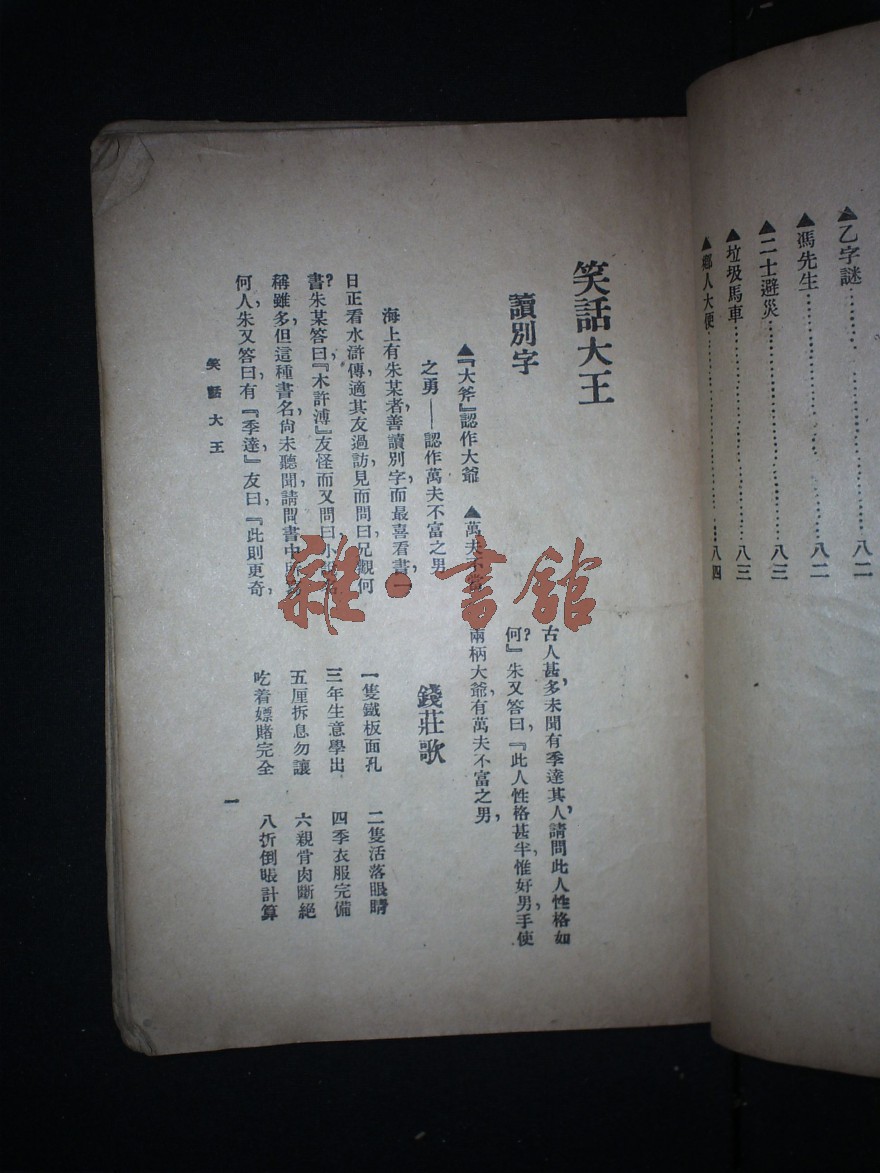 ▲乙字謎……八二
▲馮先生……八二
▲二士避災……八三
▲垃圾馬車……八三
▲鄉人大便……八四
笑話大王
讀別字
▲『大斧』認作大爺　▲萬夫不
之勇——認作萬夫不富之男
海上有朱某者善讀別字而最喜看書，一
日正看水滸傳，適其友過訪，見而問曰，兄觀何
書？朱某答曰，『木許溥』友怪而又問曰，小
稱雖多，但這種書名，尙未聽聞，請問書中
何人，朱又答曰，有『季達』友曰『此則更奇，
古人甚多，未聞有季達其人，請問此人性格如
何？』朱又答曰，『此人性格甚半，惟好男，手使
兩柄大爺，有萬夫不富之男，
錢莊歌
一隻鐵板面孔　二隻活落眼睛
三年生意學出　四季衣服完備
五厘拆息勿讓　六親骨肉斷絕
吃着嫖賭完全　八折倒賬計算
笑話大王
一
雜·書館